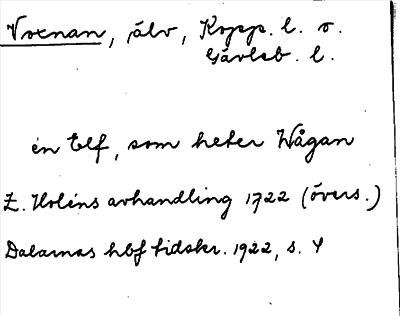 Voxnan, älv, Kopp. l. o.
Gävleb. l.
en Elf, som heter Wågan
E. Holéns avhandling 1722 (övers.)
Dalarnas hbf tidskr. 1922, s. 4